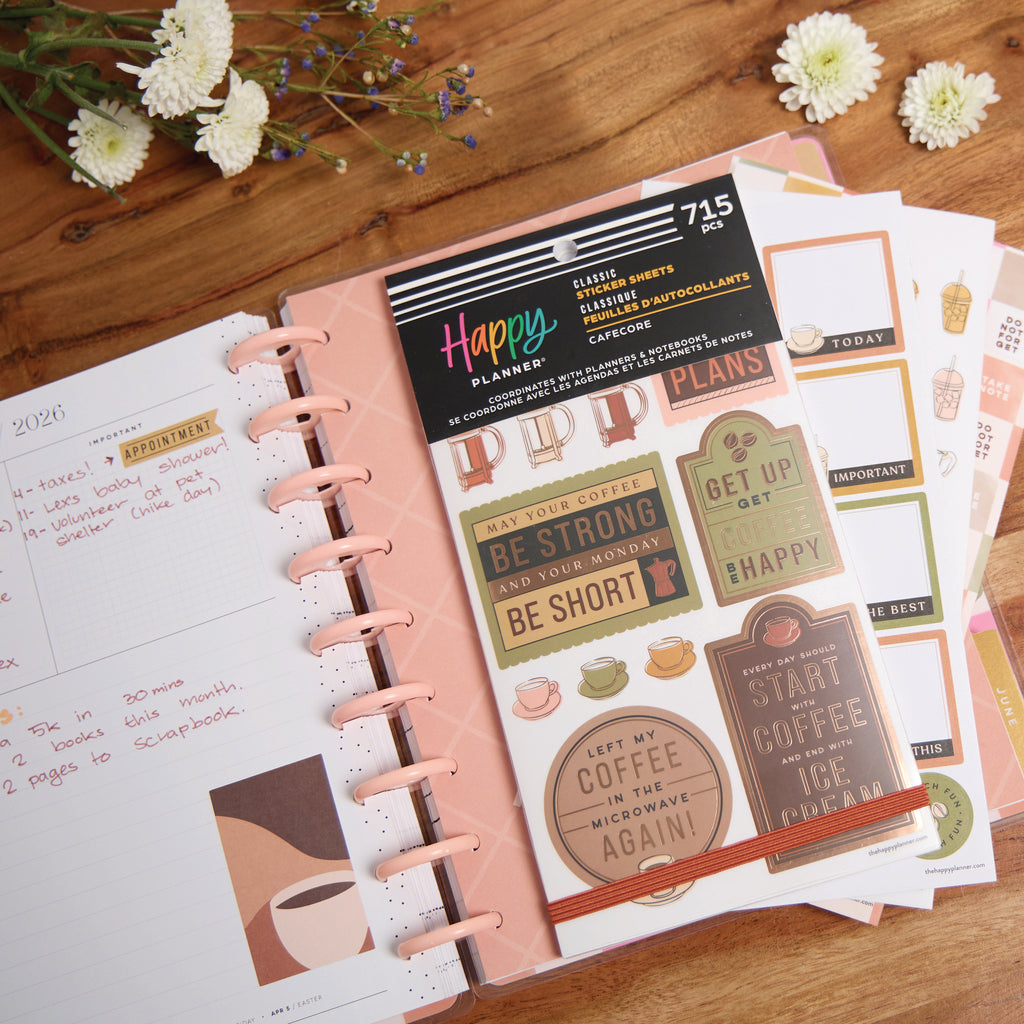 / 2026
IMPORTANT
APPOINTMENT
4- taxes!
11- Lex's baby shower!
19- volunteer at pet
shelter (hike day)
5k in 30 mins
2 books this month.
2 pages to scrapbook.
APR 5 / EASTER
715
pcs
CLASSIC
STICKER SHEETS
CLASSIQUE
FEUILLES D'AUTOCOLLANTS
CAFECORE
Happy
PLANNER®
COORDINATES WITH PLANNERS & NOTEBOOKS
SE COORDONNE AVEC LES AGENDAS ET LES CARNETS DE NOTES
PLANS
MAY YOUR COFFEE
BE STRONG
AND YOUR MONDAY
BE SHORT
GET UP
GET
COFFEE
BE HAPPY
EVERY DAY SHOULD
START
WITH
COFFEE
AND END WITH
ICE
CREAM
LEFT MY
COFFEE
IN THE
MICROWAVE
AGAIN!
thehappyplanner.com
TODAY
IMPORTANT
THE BEST
THIS
FUN
thehappyplanner.com
DO
NOT
FOR
GET
TAKE
NOTE
DO
NOT
FOR
GET
JUNE